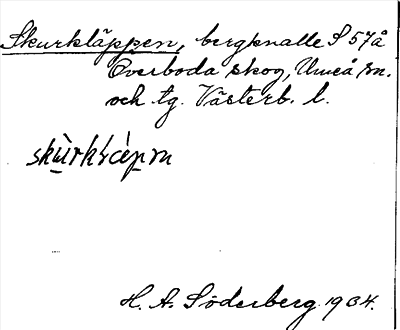 Skurkläppen, bergknalle S 57å
Överboda skog, Umeå sn.
och tg. Västerb. l.
H. A. Söderberg 1934.